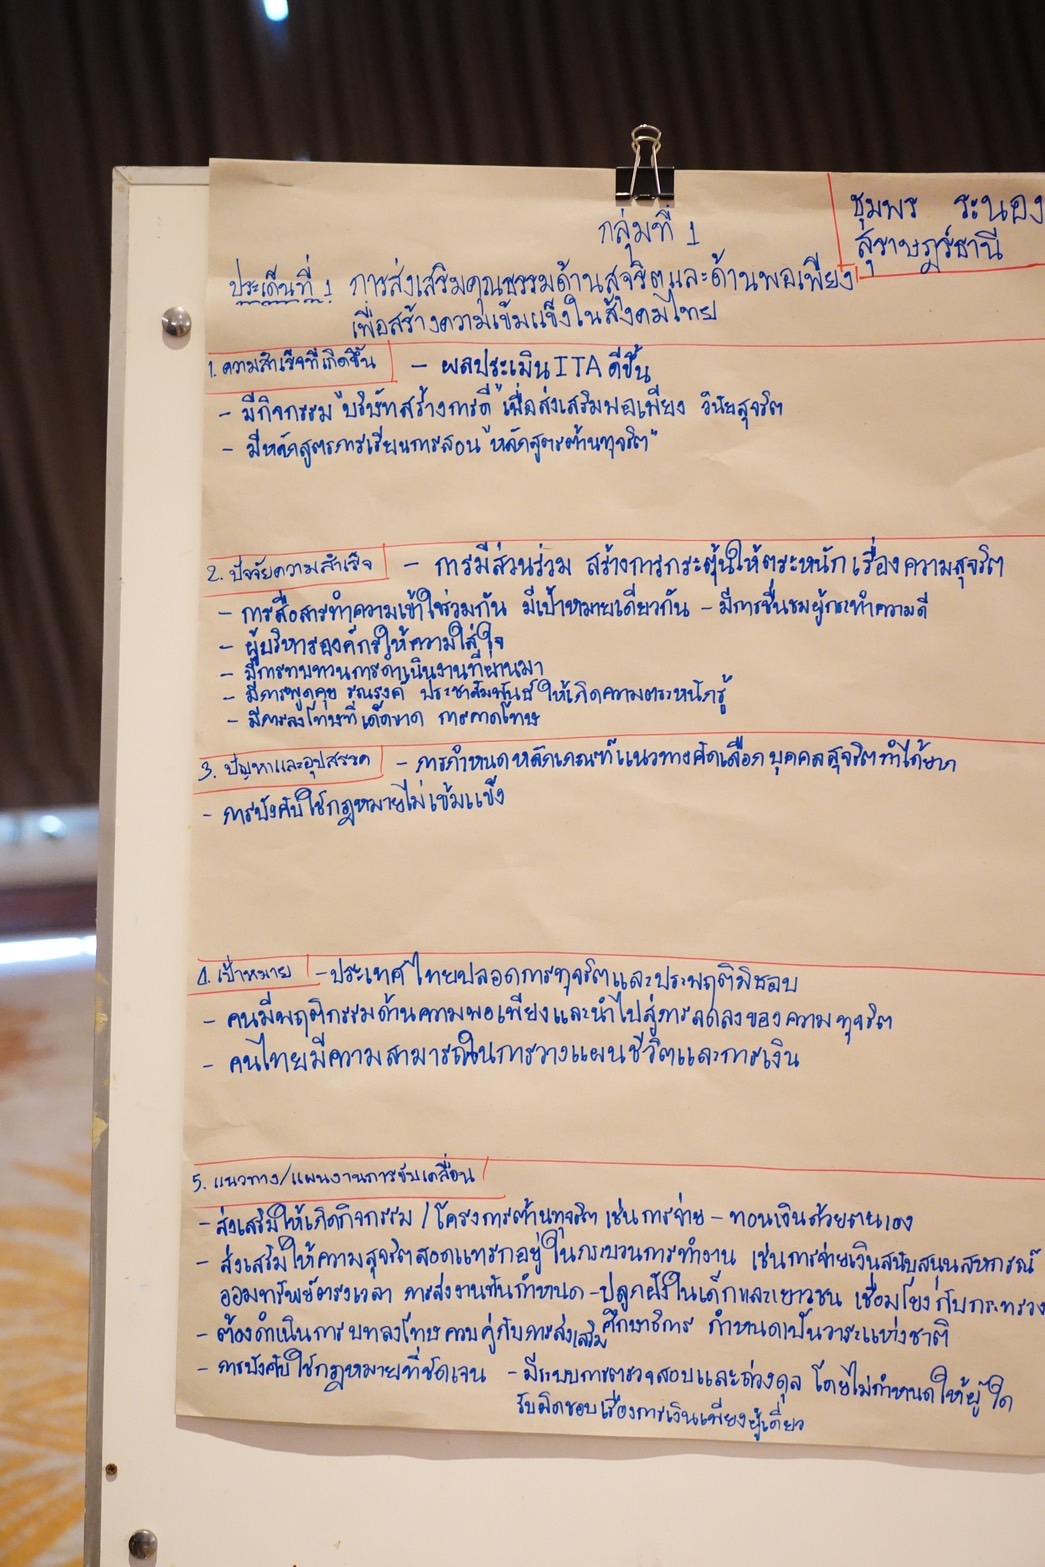 กลุ่มที่ 1
ชุมพร ระนอง
สุราษฎร์ธานี
ประเด็นที่ 1 การส่งเสริมคุณธรรมด้านสุจริตและด้านพอเพียง
เพื่อสร้างความเข้มแข็งในสังคมไทย
1. ความสำเร็จที่เกิดขึ้น - ผลประเมิน ITA ดีขึ้น
- มีกิจกรรม "บริษัทสร้างการดี" เพื่อส่งเสริมพอเพียง วินัยสุจริต
- มีหลักสูตรการเรียนการสอน "หลักสูตรต้านทุจริต"
2. ปัจจัยความสำเร็จ - การมีส่วนร่วม สร้างการกระตุ้นให้ตระหนักเรื่องความสุจริต
- การสื่อสารทำความเข้าใจร่วมกัน มีเป้าหมายเดียวกัน - มีการชื่นชมผู้กระทำความดี
- ผู้บริหารองค์กรให้ความใส่ใจ
- มีการทบทวนการดำเนินงานที่ผ่านมา
- มีการพูดคุย รณรงค์ ประชาสัมพันธ์ ให้เกิดความตระหนักรู้
- มีการลงโทษที่เด็ดขาด การคาดโทษ
3. ปัญหาและอุปสรรค - การกำหนดหลักเกณฑ์แนวทางคัดเลือกบุคคลสุจริตทำได้ยาก
- การบังคับใช้กฎหมายไม่เข้มแข็ง
4. เป้าหมาย - ประเทศไทยปลอดการทุจริตและประพฤติมิชอบ
- คนมีพฤติกรรมด้านความพอเพียงและนำไปสู่การลดลงของความทุจริต
- คนไทยมีความสามารถในการวางแผนชีวิตและการเงิน
5. แนวทาง/แผนงานการขับเคลื่อน
- ส่งเสริมให้เกิดกิจกรรม / โครงการต้านทุจริต เช่นการจ่าย - ทอนเงินด้วยตนเอง
- ส่งเสริมให้ความสุจริตสอดแทรกอยู่ในกระบวนการทำงาน เช่นการจ่ายเงินสนับสนุนสหกรณ์
ออมทรัพย์ตรงเวลา การส่งงานทันกำหนด - ปลูกฝังในเด็กและเยาวชน เชื่อมโยงกับกระทรวง
- ต้องดำเนินการบทลงโทษควบคู่กับการส่งเสริม ศึกษาธิการ กำหนดเป็นวาระแห่งชาติ
- การบังคับใช้กฎหมายที่ชัดเจน - มีระบบการตรวจสอบและถ่วงดุล โดยไม่กำหนดให้ผู้ใด
รับผิดชอบเรื่องการเงินเพียงผู้เดียว